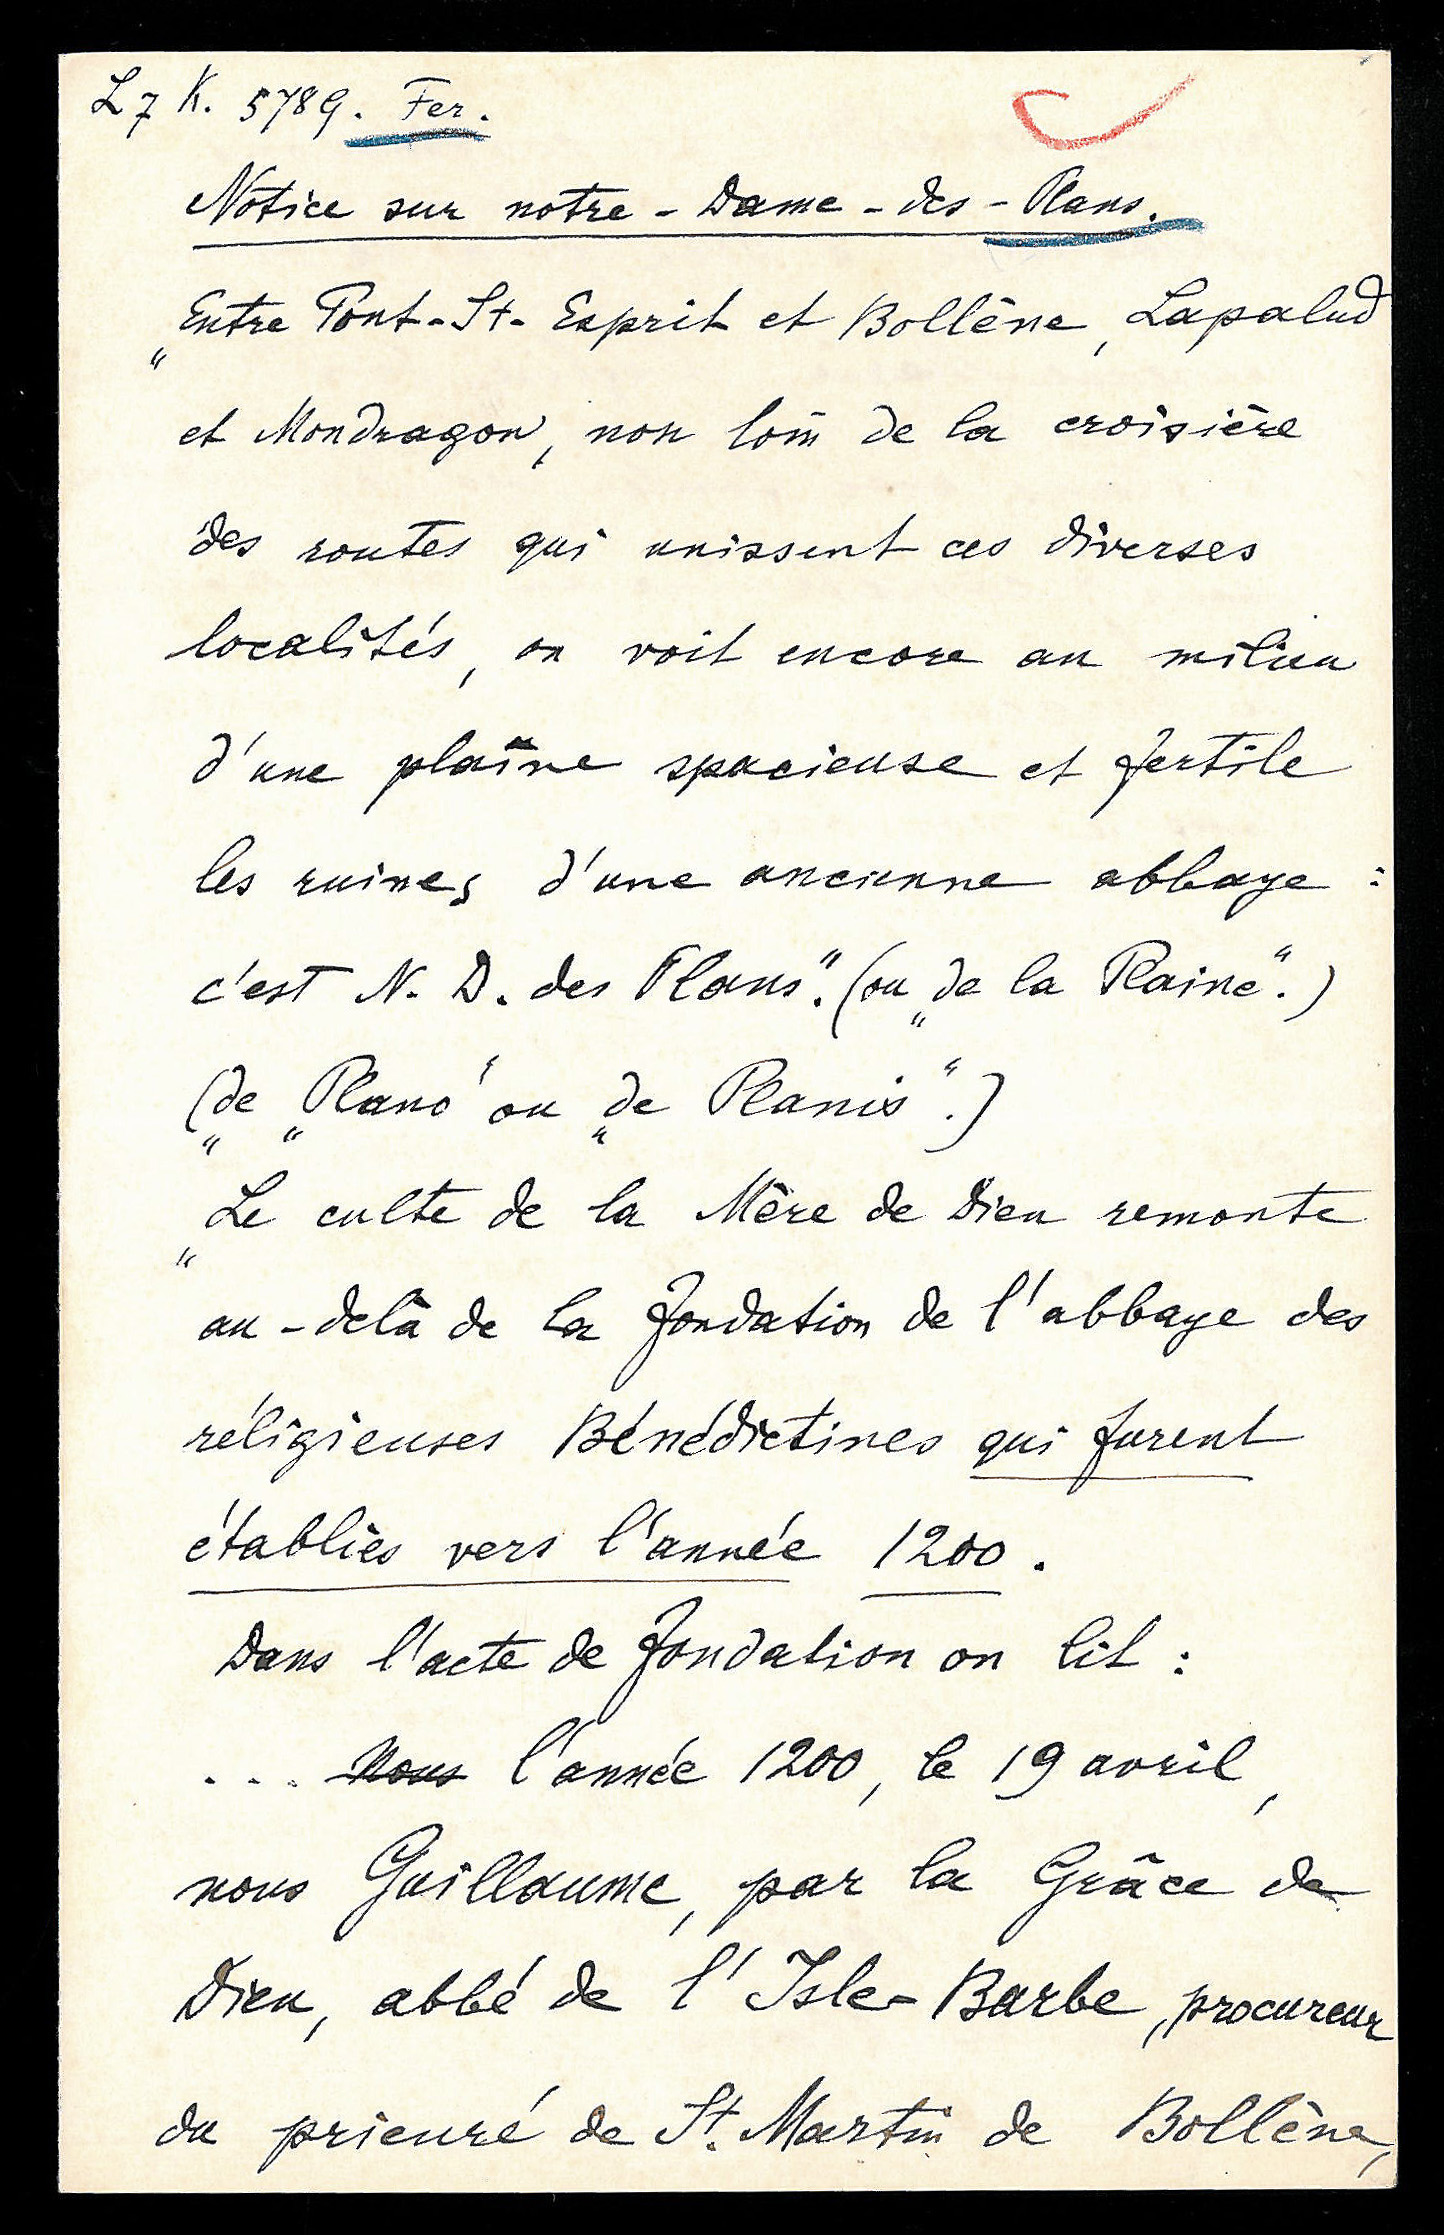 L 7 K. 5789. Fer.
Notice sur notre-Dame-des-Plans.
„Entre Pont-St-Esprit et Bollène, Lapalud
et Mondragon, non loin de la croisière
des routes qui unissent ces diverses
localités, on voit encore au milieu
d'une plaîne spacieuse et fertile
les ruines d'une ancienne abbaye :
c'est N. D. des Plans". (ou „de la Plaine".)
(„de „Plano" ou „de Planis".)
„Le culte de la Mère de Dieu remonte
au-delà de la fondation de l'abbaye des
réligieuses Bénédictines qui furent
établiès vers l'année 1200.
Dans l'acte de fondation on lit :
... Nous l'année 1200, le 19 avril,
nous Guillaume, par la Grâce de
Dieu, abbé de l'Isle-Barbe, procureur
du prieuré de St. Martin de Bollène,